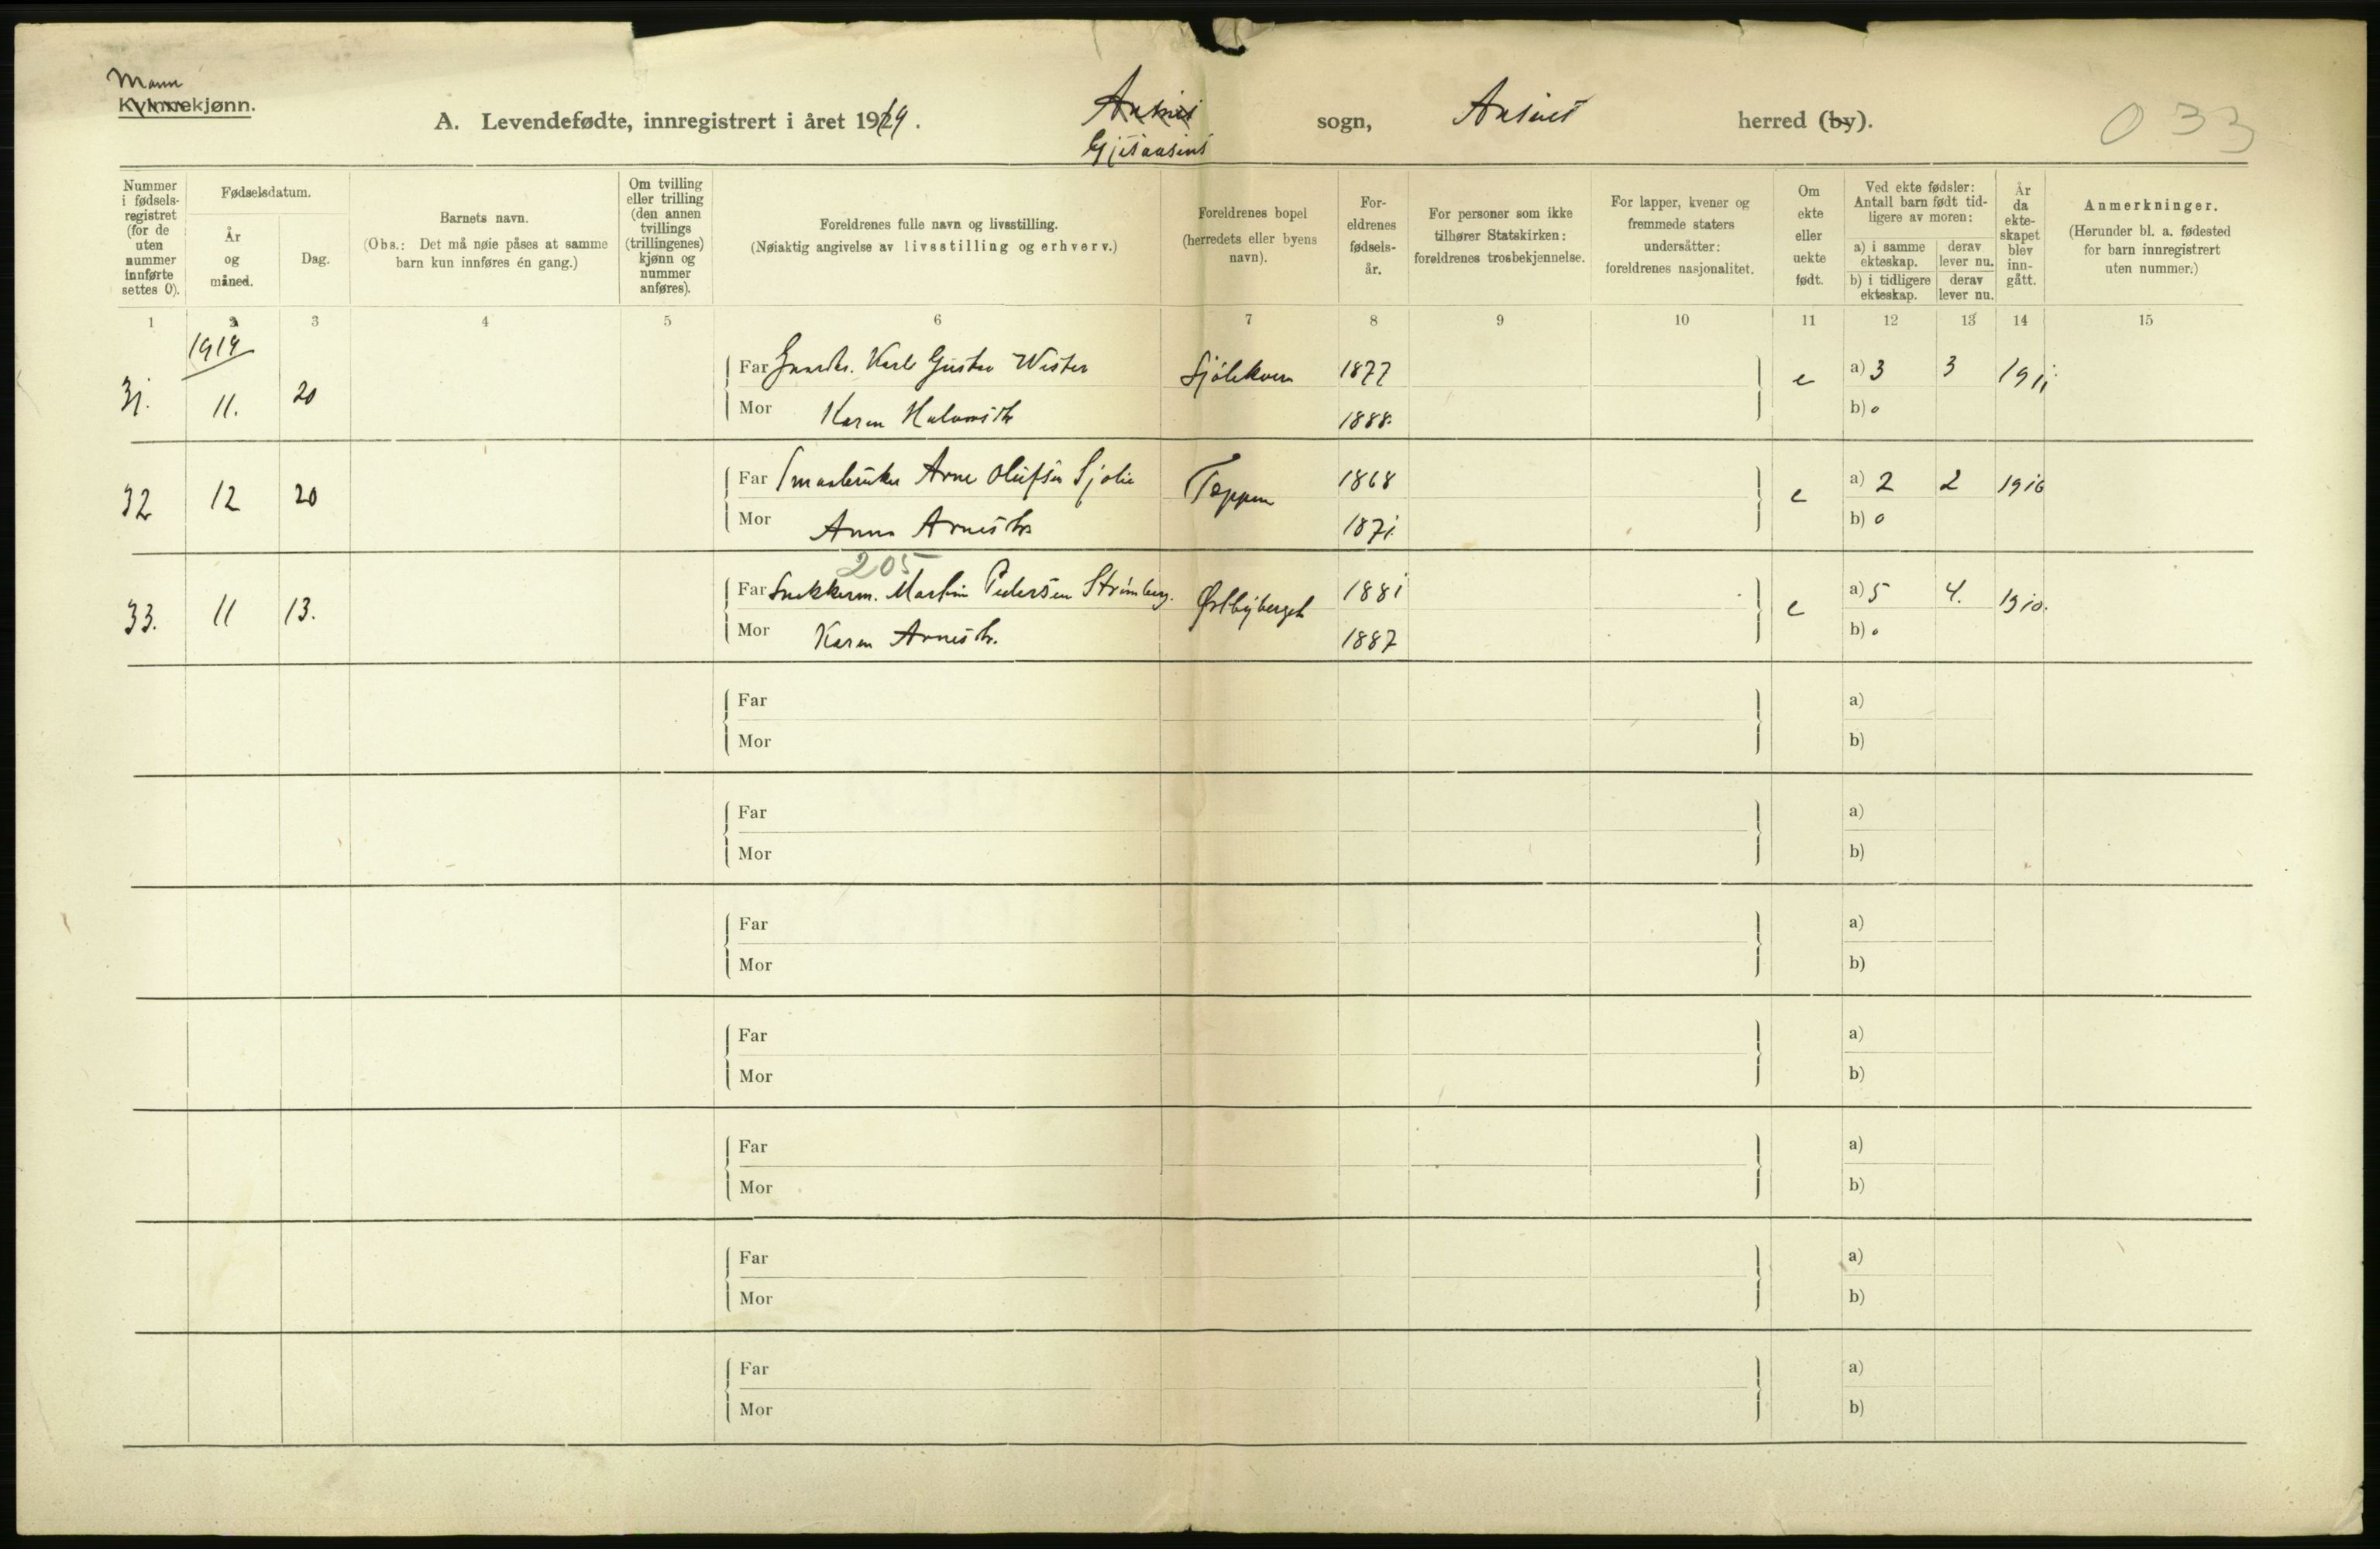 Mann
Kvinnekjønn.
A. Levendefødte, innregistrert i året 1919.
Gjesaasens
sogn,
Aasnes
herred (by).
033
Nummer i fødsels-registret (for de uten nummer innførte settes 0).
Fødselsdatum.
År og måned.
Dag.
Barnets navn.
(Obs.: Det må nøie påses at samme barn kun innføres én gang.)
Om tvilling eller trilling (den annen tvillings (trillingenes) kjønn og nummer anføres).
Foreldrenes fulle navn og livsstilling.
(Nøiaktig angivelse av livsstilling og erhverv.)
Foreldrenes bopel (herredets eller byens navn).
For-eldrenes fødsels-år.
For personer som ikke tilhører Statskirken: foreldrenes trosbekjennelse.
For lapper, kvener og fremmede staters undersåtter: foreldrenes nasjonalitet.
Om ekte eller uekte født.
Ved ekte fødsler: Antall barn født tid-ligere av moren:
a) i samme ekteskap.
derav lever nu.
b) i tidligere ekteskap.
derav lever nu.
År da ekte-skapet blev inn-gått.
Anmerkninger.
(Herunder bl. a. fødested for barn innregistrert uten nummer.)
1 2 3 4 5 6 7 8 9 10 11 12 13 14 15
1919
31. 11. 20 Far Gaardbr. Karl Gustav Wister Sjölikvern 1877 e a) 3 3 1911
Mor Karen Halvorsdtr 1888. b) 0
32 12 20 Far Smaabruker Arne Olufsen Sjolie Toppen 1868 e a) 2 2 1916
Mor Anna Arnesdtr 1871. b) 0
205
33. 11 13. Far Snekkerm. Martin Pedersen Strømberg. Østbyberget 1881 e a) 5 4. 1910.
Mor Karen Arnesdtr. 1887 b) 0
Far a)
Mor b)
Far a)
Mor b)
Far a)
Mor b)
Far a)
Mor b)
Far a)
Mor b)
Far a)
Mor b)
Far a)
Mor b)